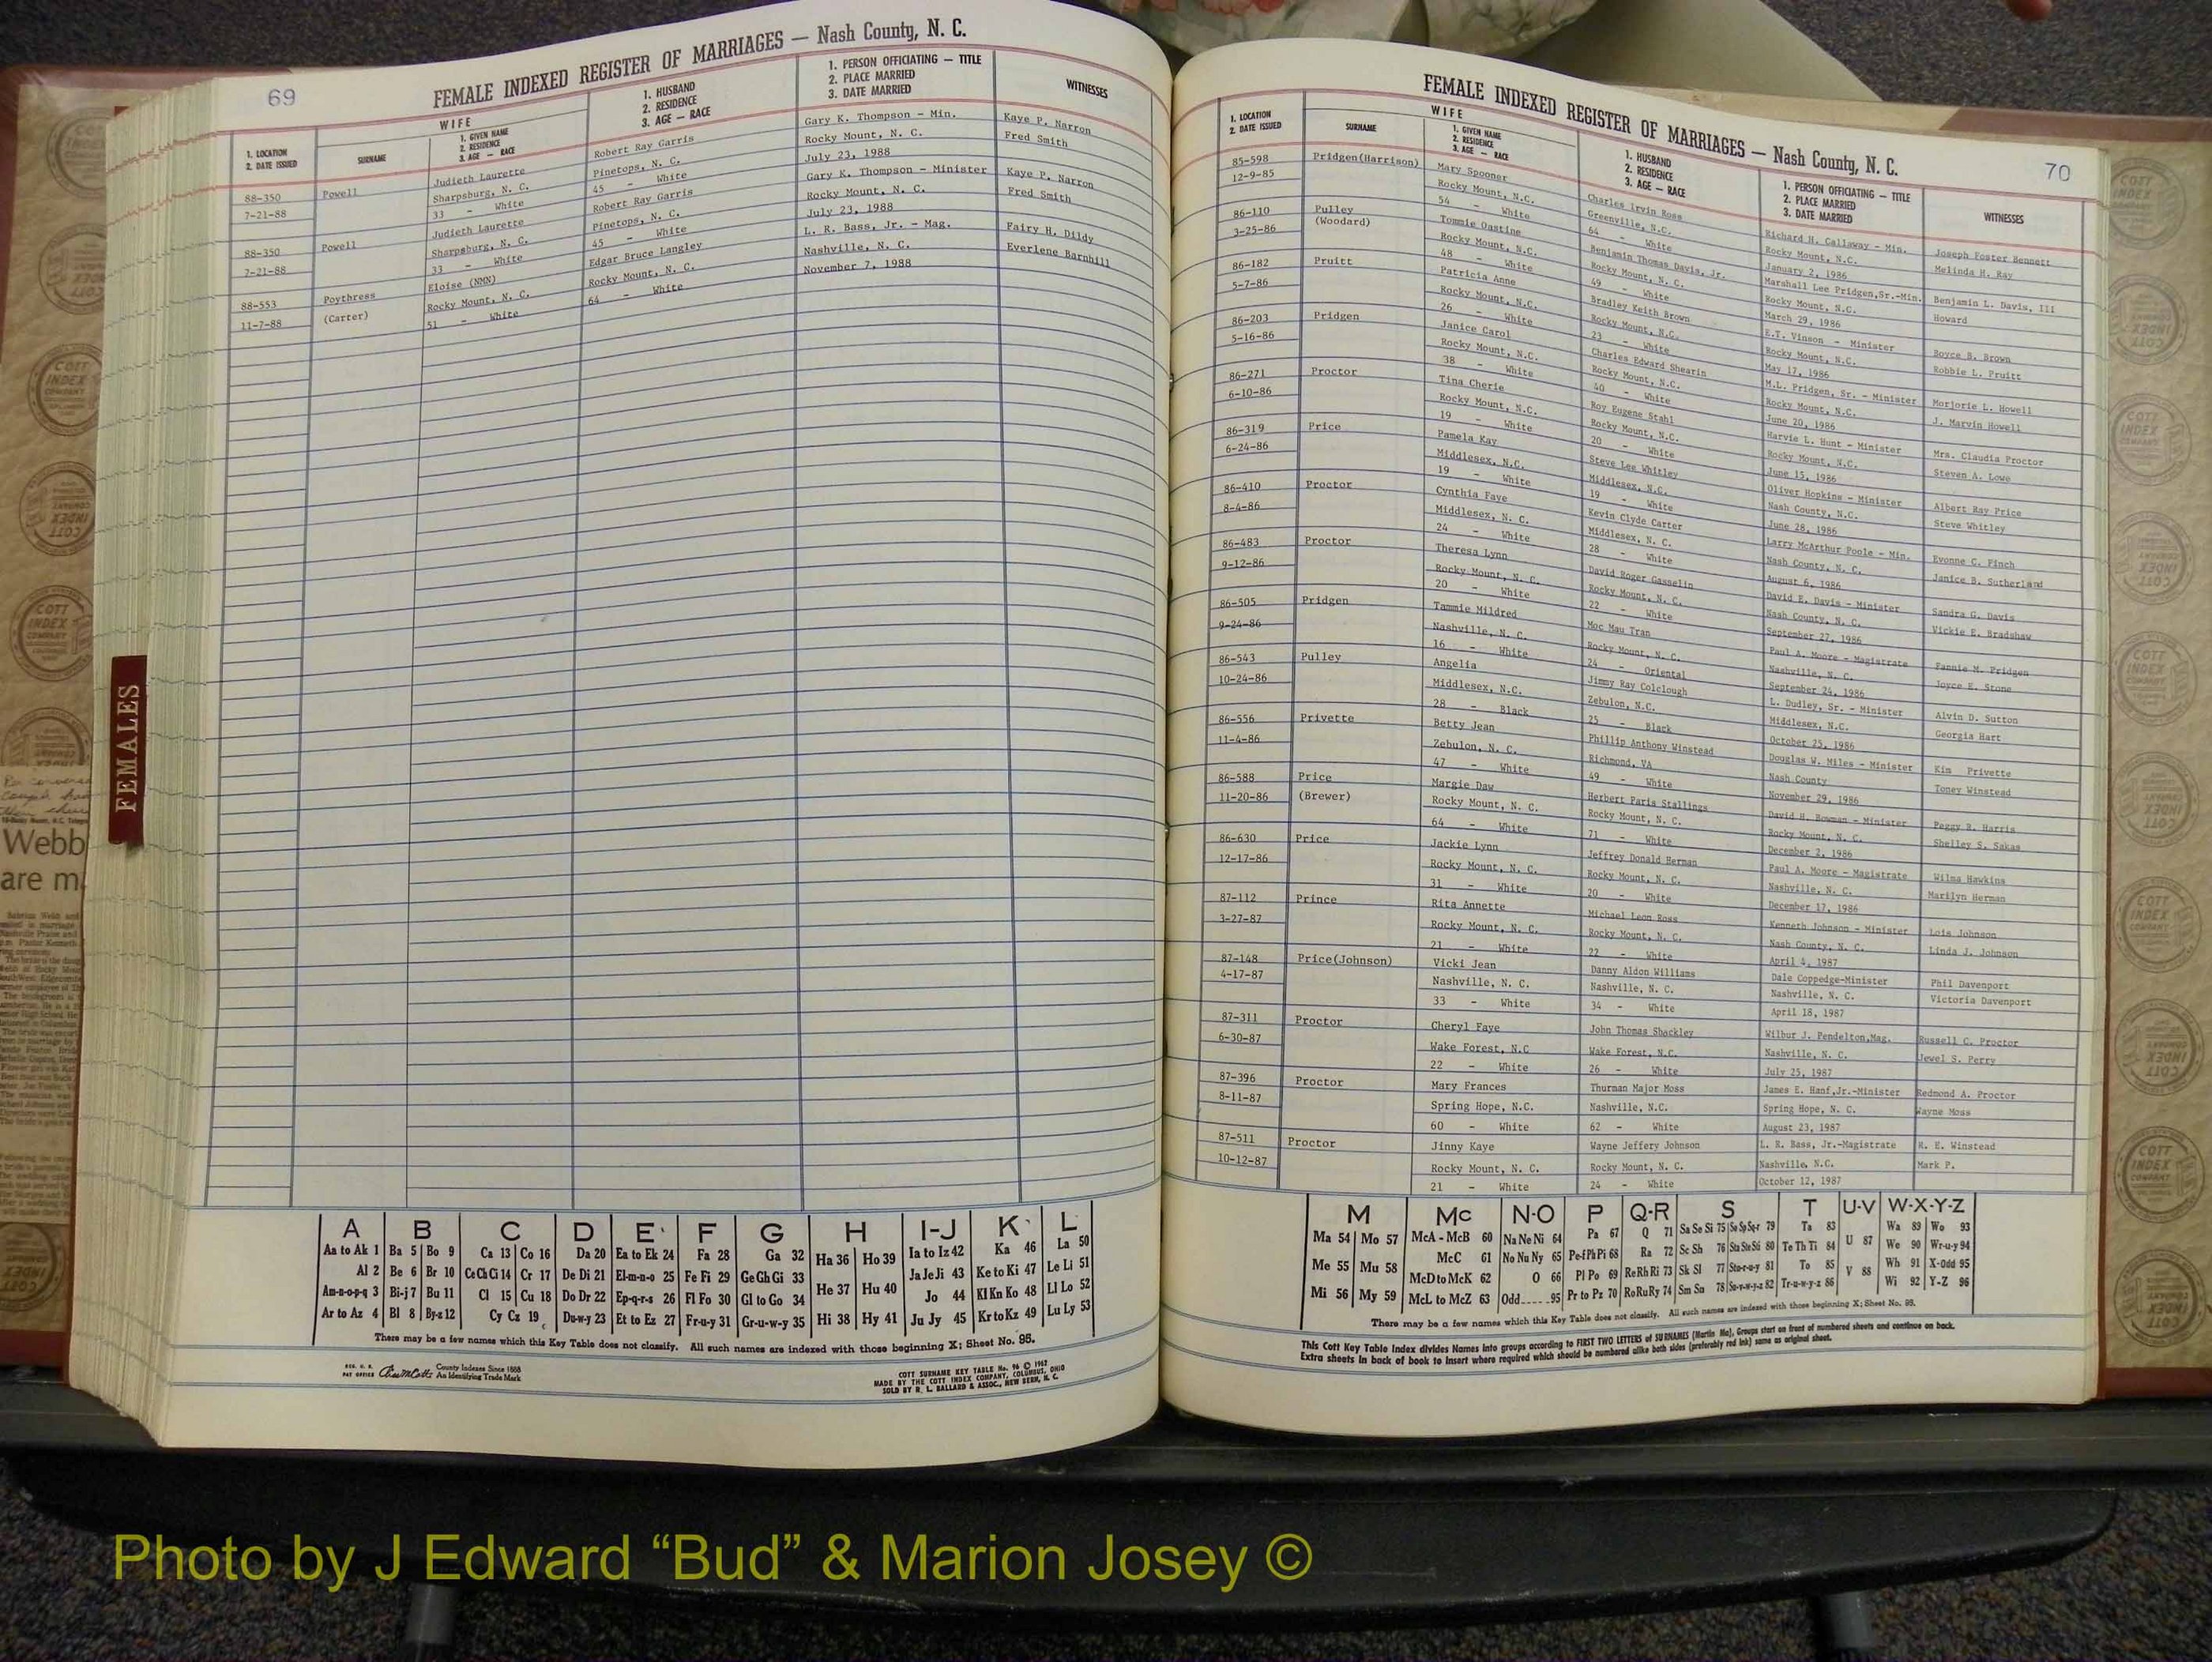 69
FEMALE INDEXED REGISTER OF MARRIAGES — Nash County, N. C.
1. LOCATION
2. DATE ISSUED
WIFE
SURNAME
1. GIVEN NAME
2. RESIDENCE
3. AGE — RACE
1. HUSBAND
2. RESIDENCE
3. AGE — RACE
1. PERSON OFFICIATING — TITLE
2. PLACE MARRIED
3. DATE MARRIED
WITNESSES
88-350 Powell Judieth Laurette Robert Ray Garris Gary K. Thompson - Min. Kaye P. Narron
7-21-88 Sharpsburg, N. C. Pinetops, N. C. Rocky Mount, N. C. Fred Smith
33 - White 45 - White July 23, 1988
88-350 Powell Judieth Laurette Robert Ray Garris Gary K. Thompson - Minister Kaye P. Narron
7-21-88 Sharpsburg, N. C. Pinetops, N. C. Rocky Mount, N. C. Fred Smith
33 - White 45 - White July 23, 1988
88-553 Poythress Eloise (NMN) Edgar Bruce Langley L. R. Bass, Jr. - Mag. Fairy H. Dildy
11-7-88 (Carter) Rocky Mount, N. C. Rocky Mount, N. C. Nashville, N. C. Everlene Barnhill
51 - White 64 - White November 7, 1988
FEMALES
Webb
are m
A B C D E F G H I-J K L
Aa to Ak 1 Ba 5 Bo 9 Ca 13 Co 16 Da 20 Ea to Ek 24 Fa 28 Ga 32 Ha 36 Ho 39 Ia to Iz 42 Ka 46 La 50
Al 2 Be 6 Br 10 Ce Ch Ci 14 Cr 17 De Di 21 El-m-n-o 25 Fe Fi 29 Ge Gh Gi 33 He 37 Hu 40 Ja Je Ji 43 Ke to Ki 47 Le Li 51
Am-n-o-p-q 3 Bi-j 7 Bu 11 Cl 15 Cu 18 Do Dr 22 Ep-q-r-s 26 Fl Fo 30 Gl to Go 34 Hi 38 Hy 41 Jo 44 Kl Kn Ko 48 Ll Lo 52
Ar to Az 4 Bl 8 By-z 12 Cy Cz 19 Du-w-y 23 Et to Ez 27 Fr-u-y 31 Gr-u-w-y 35 Ju Jy 45 Kr to Kz 49 Lu Ly 53
There may be a few names which this Key Table does not classify. All such names are indexed with those beginning X; Sheet No. 95.
County Indexes Since 1888
An Identifying Trade Mark
COTT SURNAME KEY TABLE No. 96 © 1962
MADE BY THE COTT INDEX COMPANY, COLUMBUS, OHIO
SOLD BY R. L. BALLARD & ASSOC., NEW BERN, N. C.
FEMALE INDEXED REGISTER OF MARRIAGES — Nash County, N. C.
70
1. LOCATION
2. DATE ISSUED
WIFE
SURNAME
1. GIVEN NAME
2. RESIDENCE
3. AGE — RACE
1. HUSBAND
2. RESIDENCE
3. AGE — RACE
1. PERSON OFFICIATING — TITLE
2. PLACE MARRIED
3. DATE MARRIED
WITNESSES
85-598 Pridgen(Harrison) Mary Spooner Charles Irvin Ross Richard H. Callaway - Min. Joseph Foster Bennett
12-9-85 Rocky Mount, N.C. Greenville, N.C. Rocky Mount, N.C. Melinda H. Ray
54 - White 64 - White January 2, 1986
86-110 Pulley Tommie Oastine Benjamin Thomas Davis, Jr. Marshall Lee Pridgen,Sr.-Min. Benjamin L. Davis, III
3-25-86 (Woodard) Rocky Mount, N.C. Rocky Mount, N. C. Rocky Mount, N.C. Howard
48 - White 49 - White March 29, 1986
86-182 Pruitt Patricia Anne Bradley Keith Brown E.T. Vinson - Minister Boyce B. Brown
5-7-86 Rocky Mount, N.C. Rocky Mount, N.C. Rocky Mount, N.C. Robbie L. Pruitt
26 - White 23 - White May 17, 1986
86-203 Pridgen Janice Carol Charles Edward Shearin M.L. Pridgen, Sr. - Minister Morjorie L. Howell
5-16-86 Rocky Mount, N.C. Rocky Mount, N.C. Rocky Mount, N.C. J. Marvin Howell
38 - White 40 - White June 20, 1986
86-271 Proctor Tina Cherie Roy Eugene Stahl Harvie L. Hunt - Minister Mrs. Claudia Proctor
6-10-86 Rocky Mount, N.C. Rocky Mount, N.C. Rocky Mount, N.C. Steven A. Lowe
19 - White 20 - White June 15, 1986
86-319 Price Pamela Kay Steve Lee Whitley Oliver Hopkins - Minister Albert Ray Price
6-24-86 Middlesex, N.C. Middlesex, N.C. Nash County, N.C. Steve Whitley
19 - White 19 - White June 28, 1986
86-410 Proctor Cynthia Faye Kevin Clyde Carter Larry McArthur Poole - Min. Evonne C. Finch
8-4-86 Middlesex, N. C. Middlesex, N. C. Nash County, N. C. Janice B. Sutherland
24 - White 28 - White August 6, 1986
86-483 Proctor Theresa Lynn David Roger Gasselin David E. Davis - Minister Sandra G. Davis
9-12-86 Rocky Mount, N. C. Rocky Mount, N. C. Nash County, N. C. Vickie E. Bradshaw
20 - White 22 - White September 27, 1986
86-505 Pridgen Tammie Mildred Moc Mau Tran Paul A. Moore - Magistrate Fannie M. Pridgen
9-24-86 Nashville, N. C. Rocky Mount, N. C. Nashville, N. C. Joyce E. Stone
16 - White 24 - Oriental September 24, 1986
86-543 Pulley Angelia Jimmy Ray Colclough L. Dudley, Sr. - Minister Alvin D. Sutton
10-24-86 Middlesex, N.C. Zebulon, N.C. Middlesex, N.C. Georgia Hart
28 - Black 25 - Black October 25, 1986
86-556 Privette Betty Jean Phillip Anthony Winstead Douglas W. Miles - Minister Kim Privette
11-4-86 Zebulon, N. C. Richmond, VA Nash County Toney Winstead
47 - White 49 - White November 29, 1986
86-588 Price Margie Daw Herbert Paris Stallings David H. Bowman - Minister Peggy B. Harris
11-20-86 (Brewer) Rocky Mount, N. C. Rocky Mount, N. C. Rocky Mount, N. C. Shelley S. Sakas
64 - White 71 - White December 2, 1986
86-630 Price Jackie Lynn Jeffrey Donald Herman Paul A. Moore - Magistrate Wilma Hawkins
12-17-86 Rocky Mount, N. C. Rocky Mount, N. C. Nashville, N. C. Marilyn Herman
31 - White 20 - White December 17, 1986
87-112 Prince Rita Annette Michael Leon Ross Kenneth Johnson - Minister Lois Johnson
3-27-87 Rocky Mount, N. C. Rocky Mount, N. C. Nash County, N. C. Linda J. Johnson
21 - White 22 - White April 4, 1987
87-148 Price(Johnson) Vicki Jean Danny Aldon Williams Dale Coppedge-Minister Phil Davenport
4-17-87 Nashville, N. C. Nashville, N. C. Nashville, N. C. Victoria Davenport
33 - White 34 - White April 18, 1987
87-311 Proctor Cheryl Faye John Thomas Shackley Wilbur J. Pendelton,Mag. Russell C. Proctor
6-30-87 Wake Forest, N.C Wake Forest, N.C. Nashville, N. C. Jewel S. Perry
22 - White 26 - White July 25, 1987
87-396 Proctor Mary Frances Thurman Major Moss James E. Hanf,Jr.-Minister Redmond A. Proctor
8-11-87 Spring Hope, N.C. Nashville, N.C. Spring Hope, N. C. Wayne Moss
60 - White 62 - White August 23, 1987
87-511 Proctor Jinny Kaye Wayne Jeffery Johnson L. R. Bass, Jr.-Magistrate R. E. Winstead
10-12-87 Rocky Mount, N. C. Rocky Mount, N. C. Nashville, N.C. Mark P.
21 - White 24 - White October 12, 1987
M Mc N-O P Q-R S T U-V W-X-Y-Z
Ma 54 Mo 57 McA - McB 60 Na Ne Ni 64 Pa 67 Q 71 Sa Se Si 75 So Sp Sq-r 79 Ta 83 U 87 Wa 89 Wo 93
Me 55 Mu 58 McC 61 No Nu Ny 65 Pe-f Ph Pi 68 Ra 72 Sc Sh 76 Sta Ste Sti 80 Te Th Ti 84 V 88 We 90 Wr-u-y 94
Mi 56 My 59 McD to McK 62 O 66 Pl Po 69 Re Rh Ri 73 Sk Sl 77 Sto-r-u-y 81 To 85 Wh 91 X-Odd 95
McL to McZ 63 Odd......95 Pr to Pz 70 Ro Ru Ry 74 Sm Sn 78 Su-v-w-y-z 82 Tr-u-w-y-z 86 Wi 92 Y-Z 96
There may be a few names which this Key Table does not classify. All such names are indexed with those beginning X; Sheet No. 95.
This Cott Key Table Index divides Names into groups according to FIRST TWO LETTERS of SURNAMES (Martin Ma), Groups start on front of numbered sheets and continue on back.
Extra sheets in back of book to insert where required which should be numbered alike both sides (preferably red ink) same as original sheet.
COTT
INDEX
COMPANY
Photo by J Edward “Bud” & Marion Josey ©